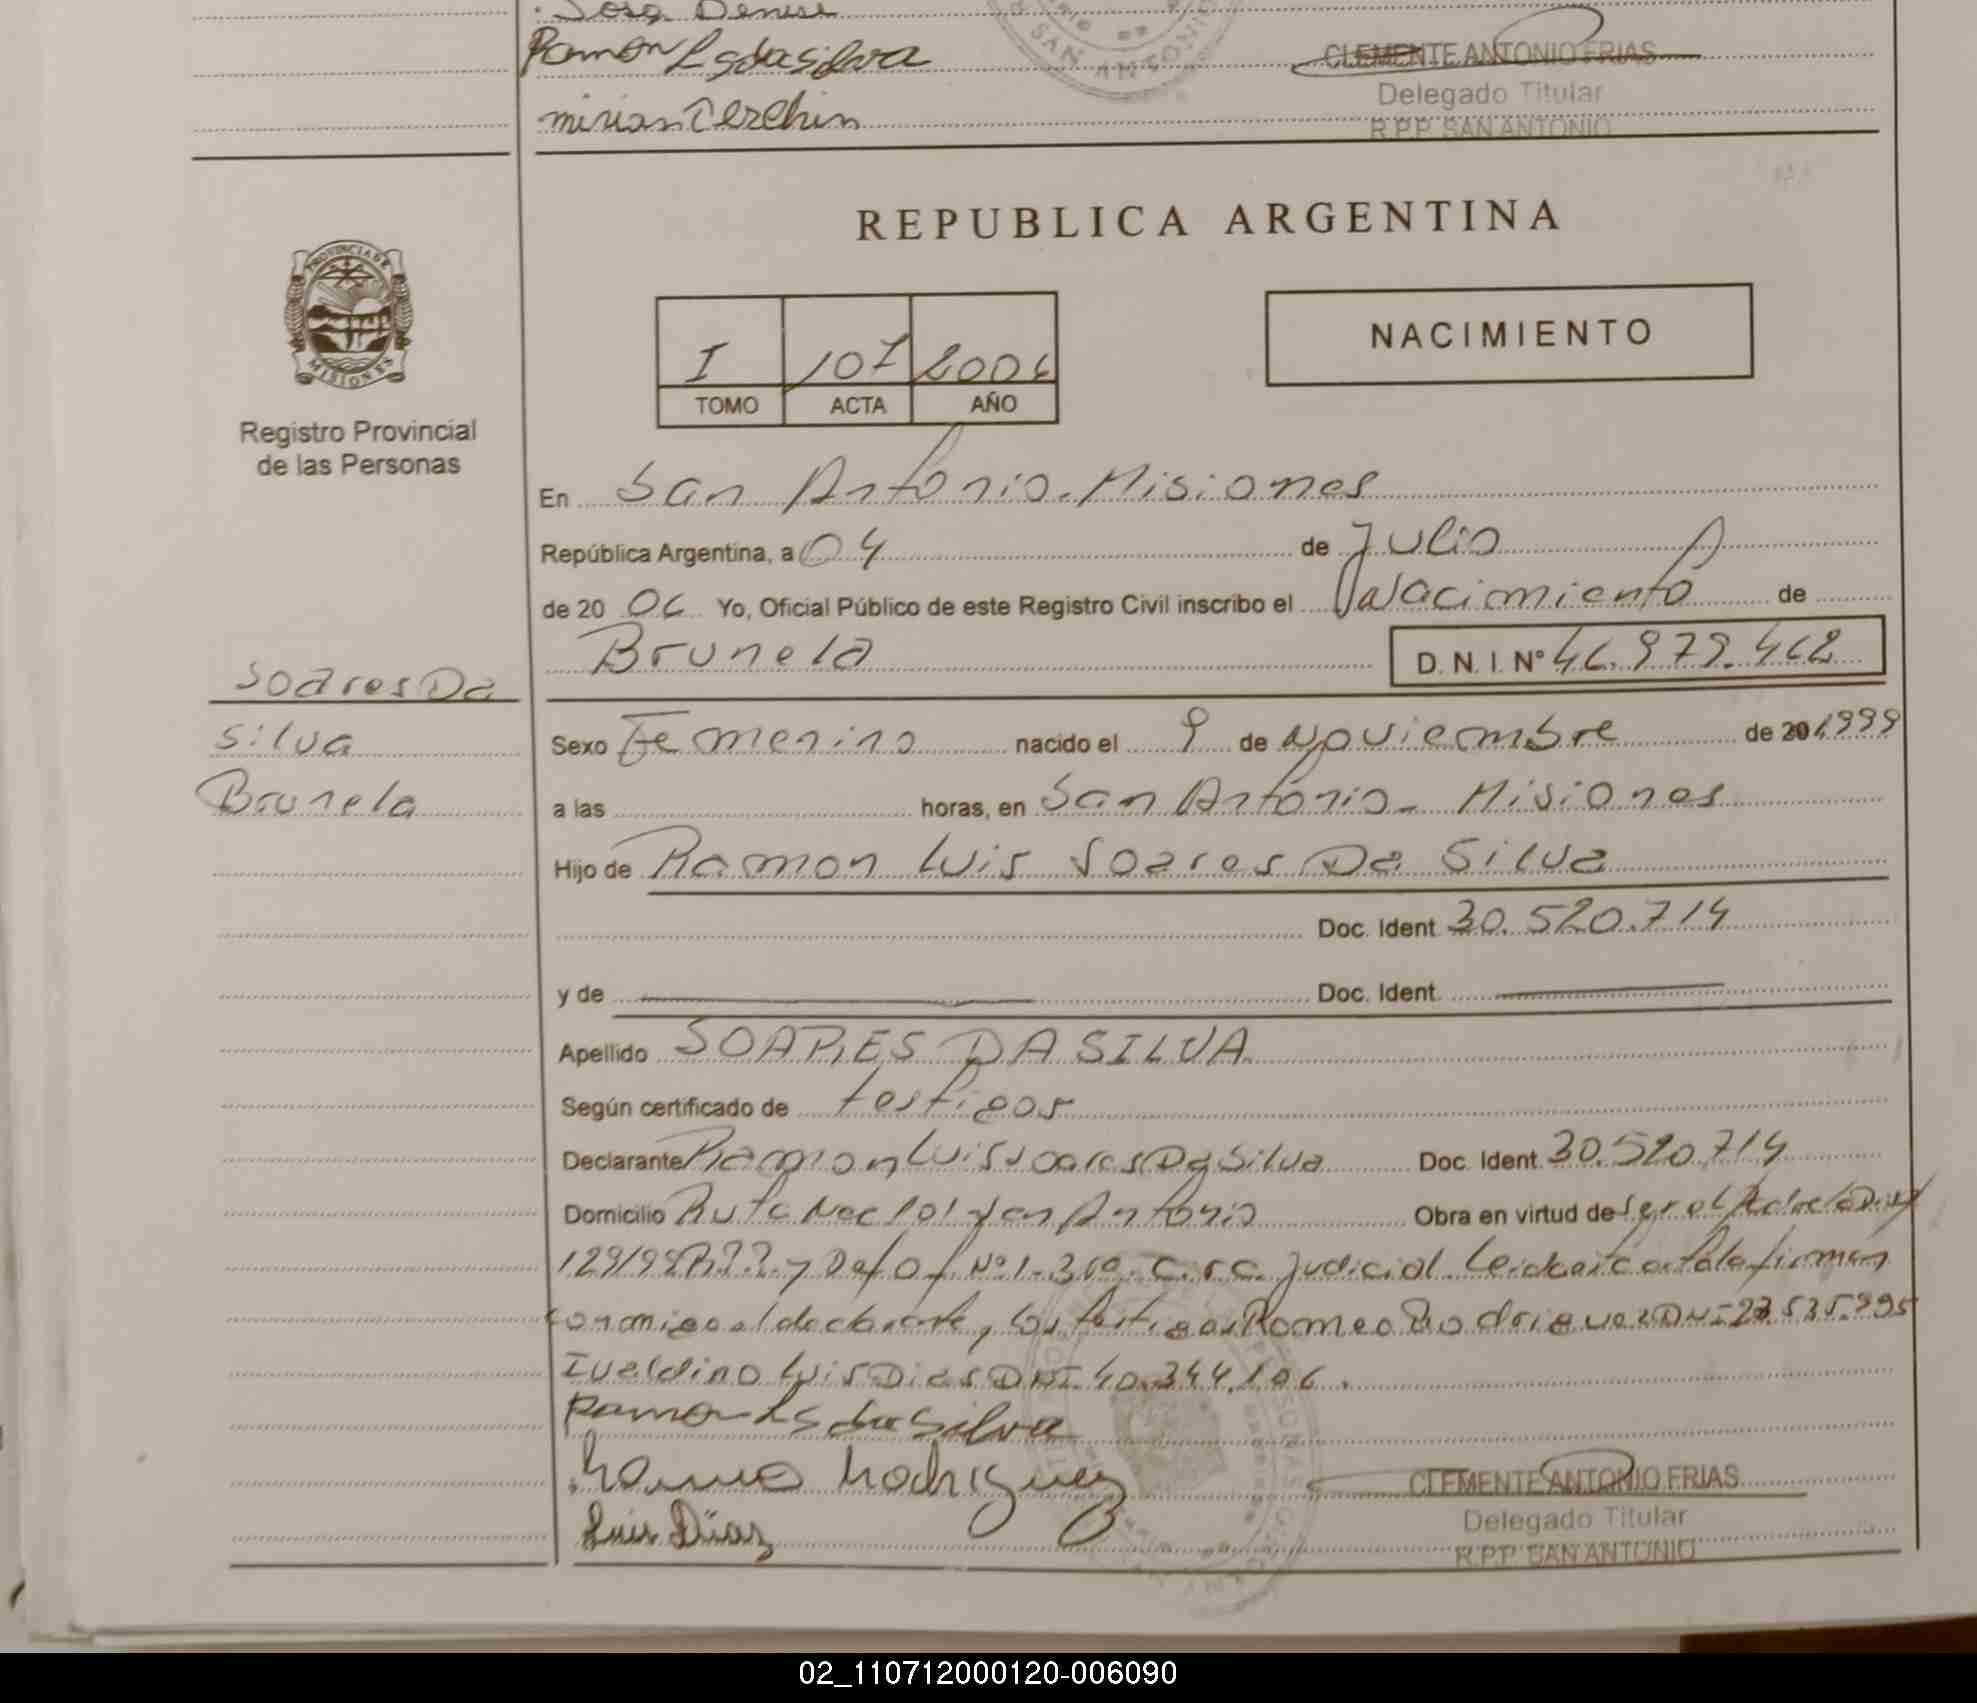 Ramon Ls da silva
CLEMENTE ANTONIO FRIAS
Delegado Titular
R.P.P. SAN ANTONIO
REPUBLICA ARGENTINA
PROVINCIA DE
MISIONES
Registro Provincial
de las Personas
I 107 2006
TOMO ACTA AÑO
NACIMIENTO
En San Antonio. Misiones
República Argentina, a 04 de Julio
de 20 06 Yo, Oficial Público de este Registro Civil inscribo el Nacimiento de
Brunela D.N.I. Nº 46.979.468
Soares Da
Silva
Brunela
Sexo Femenino nacido el 9 de Noviembre de 20 1999
a las horas, en San Antonio - Misiones
Hijo de Ramon Luis Soares Da Silva
Doc. Ident 30.520.714
y de Doc. Ident.
Apellido SOARES DA SILVA
Según certificado de testigos
Declarante Ramon Luis Soares Da Silva Doc. Ident. 30.520.714
Domicilio Ruta Nac 101 San Antonio Obra en virtud de ser el Padre
129/98 y Def Of Nº 1-3 Circ. Judicial. Leida esta Acta la firman
conmigo el declarante, los testigos Romeo Rodriguez DNI 23.535.995
Iveldino Luis Dias DNI 40.344.106.
Ramon Ls da Silva
Romeo Rodriguez
Luis Dias
CLEMENTE ANTONIO FRIAS
Delegado Titular
R.P.P. SAN ANTONIO
02_110712000120-006090